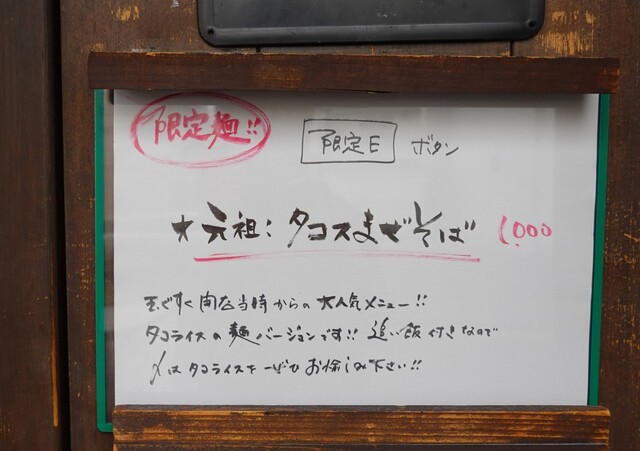 限定麺!!
限定E ボタン
★元祖:タコスまぜそば 1,000
玉ぐすく開店当時からの大人気メニュー!!
タコライスの麺バージョンです!! 追い飯付きなので
〆はタコライスでぜひお愉しみ下さい!!